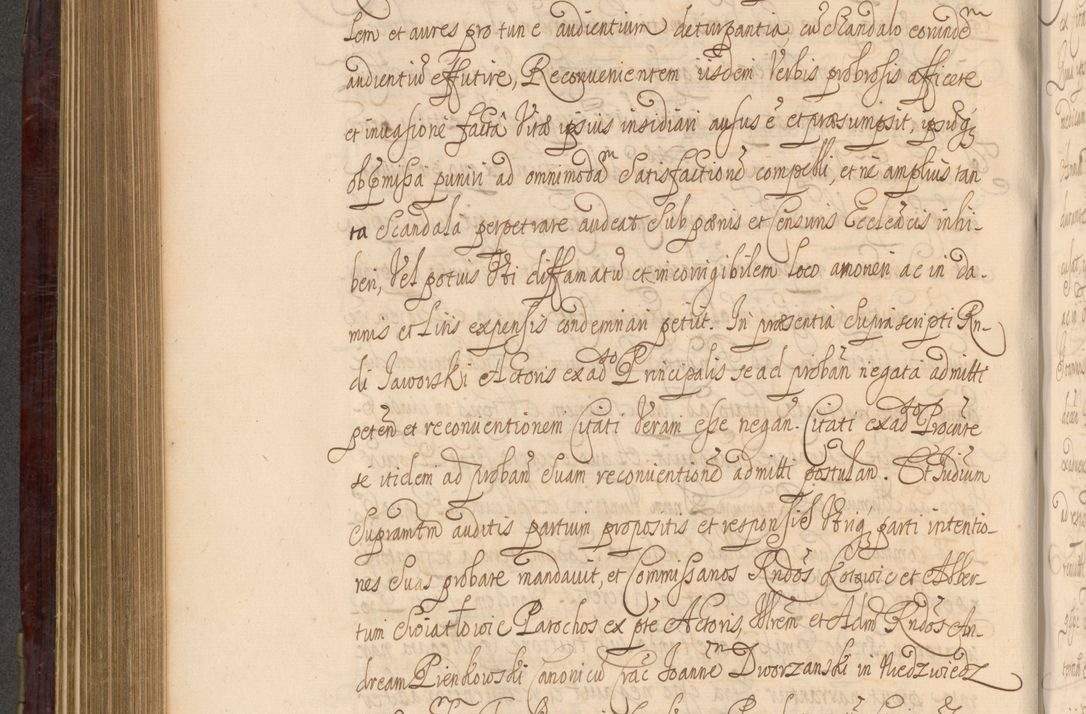 lem et aures pro tunc audientium deturpantia cū Scandalo eorundēm
audientiū effutire, Reconvenientem iisdem Verbis probrosis afficere
et invasionē factā Vitæ ipsius insidiari ausus ē et præsumpsit, ipsūq;
ob p̄missa puniri ad omnimodām Satisfactionē compelli, et nē amplius tan
ta Scandala perpetrare audeat Sub pœnis et Censuris Ecclēticis inhi-
beri, Vel potius Vti diffamatū et incorrigibilem loco amoneri ac in da-
mnis et Litis expensis condemnari petijt. In præsentia Suprascripti Rn-
di Jaworski Actoris ex adto Principalis se ad probān negata admitti
petēn et reconventionem Citati Veram esse negan. Citati ex adto Procūre
se itidem ad probān Suam reconventionē admitti postulan. Et Judium
Supramtm auditis partium propositis et responsis Vtriq; parti intentio-
nes Suas probare mandavit, et Commissarios Rndos et Alber-
tum Parochos ex pte Actoris, et Adm Rndōs An-
dream Pienkowski Canonicū Joannēm Dworzanski in Niedzwiedz